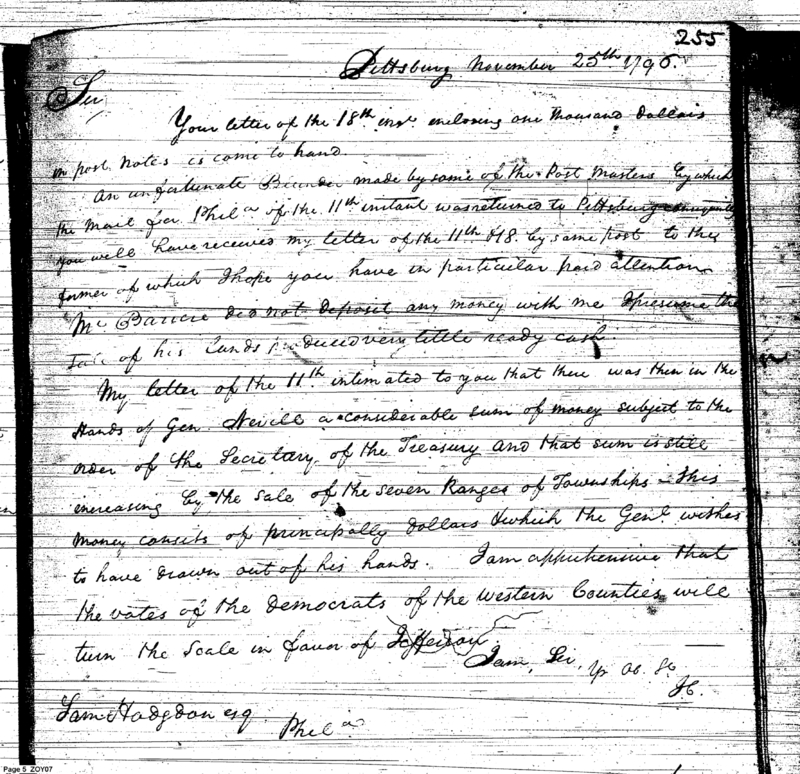 255
Pittsburg November 25th 1796.
Sir,
Your letter of the 18th inst. enclosing one thousand dollars
in post notes is come to hand.
An unfortunate Blunder made by some of the Post Masters by which
the Mail for Phila of the 11th instant was returned to Pittsburg
you will have received my letter of the 11th & 18. by same post to the
former of which I hope you have in particular paid attention
Mr did not deposit any money with me I presume the
Sale of his lands produced very little ready cash.
My letter of the 11th intimated to you that there was then in the
Hands of Gen Nevill a considerable sum of money subject to the
order of the Secretary of the Treasury and that sum is still
encreasing by the Sale of the seven Ranges of Townships - this
money consists of principally dollars & which the Genl wishes
to have drawn out of his hands. I am apprehensive that
the votes of the Democrats of the Western Counties will
turn the Scale in favor of Jefferson.
I am, Sir, Yr Ob. St
Sam Hodgdon esq
Phila
Page 5 ZOY07